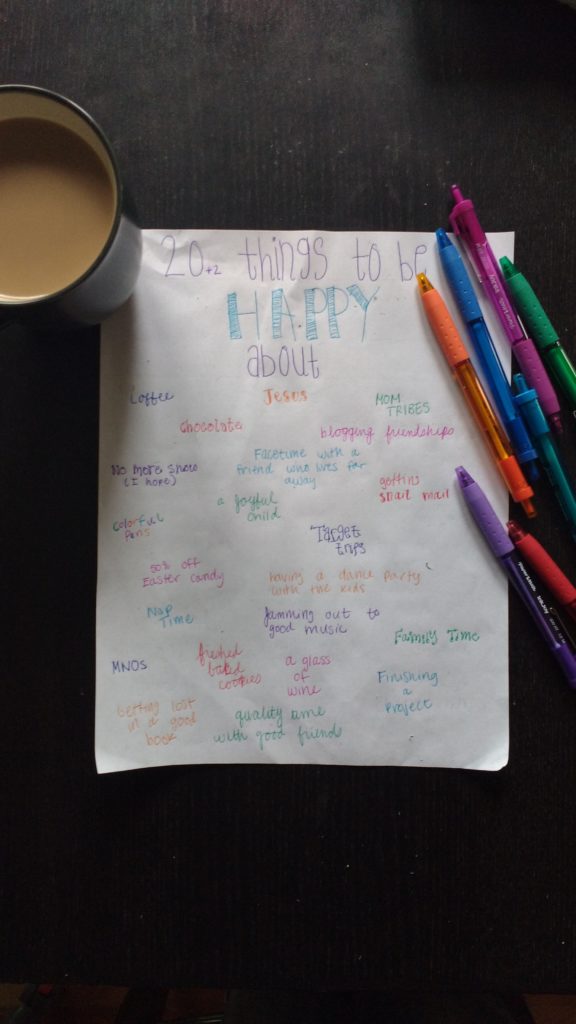 20+2 things to be
HAPPY
about
Coffee
Jesus
MOM
TRIBES
Chocolate
blogging friendships
No more snow
(I hope)
Facetime with a
friend who lives far
away
getting
snail mail
a joyful
child
colorful
pens
Target
trips
50% off
Easter candy
having a dance party
with the kids
Nap
Time
Jamming out to
good music
Family Time
MNOS
freshed
baked
cookies
a glass
of
wine
Finishing
a
Project
Getting lost
in a good
book
quality time
with good friend